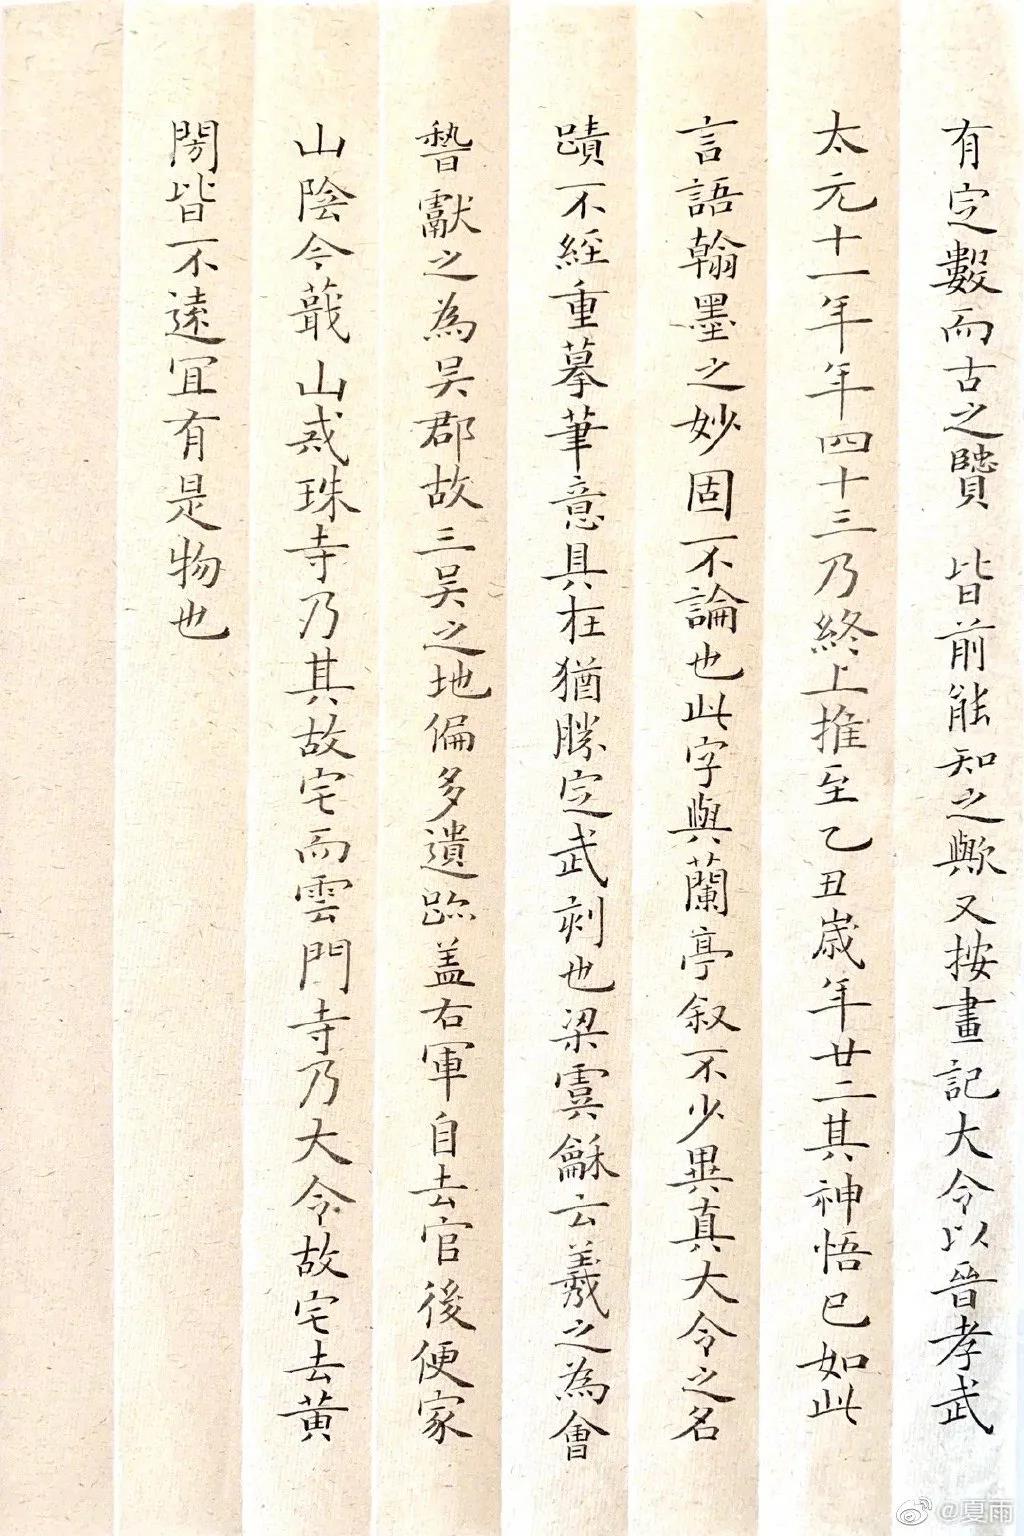 有定數而古之賢 皆前能知之歟又按畫記大令以晉孝武
太元十一年年四十三乃終上推至乙丑歲年廿二其神悟已如此
言語翰墨之妙固不論也此字與蘭亭叙不少異真大令之名
蹟不經重摹筆意具在猶勝定武刻也梁虞龢云羲之為會
稽獻之為吳郡故三吳之地偏多遺跡盖右軍自去官後便家
山陰今蕺山戒珠寺乃其故宅而雲門寺乃大令故宅去黄
閍皆不遠宜有是物也
@夏雨